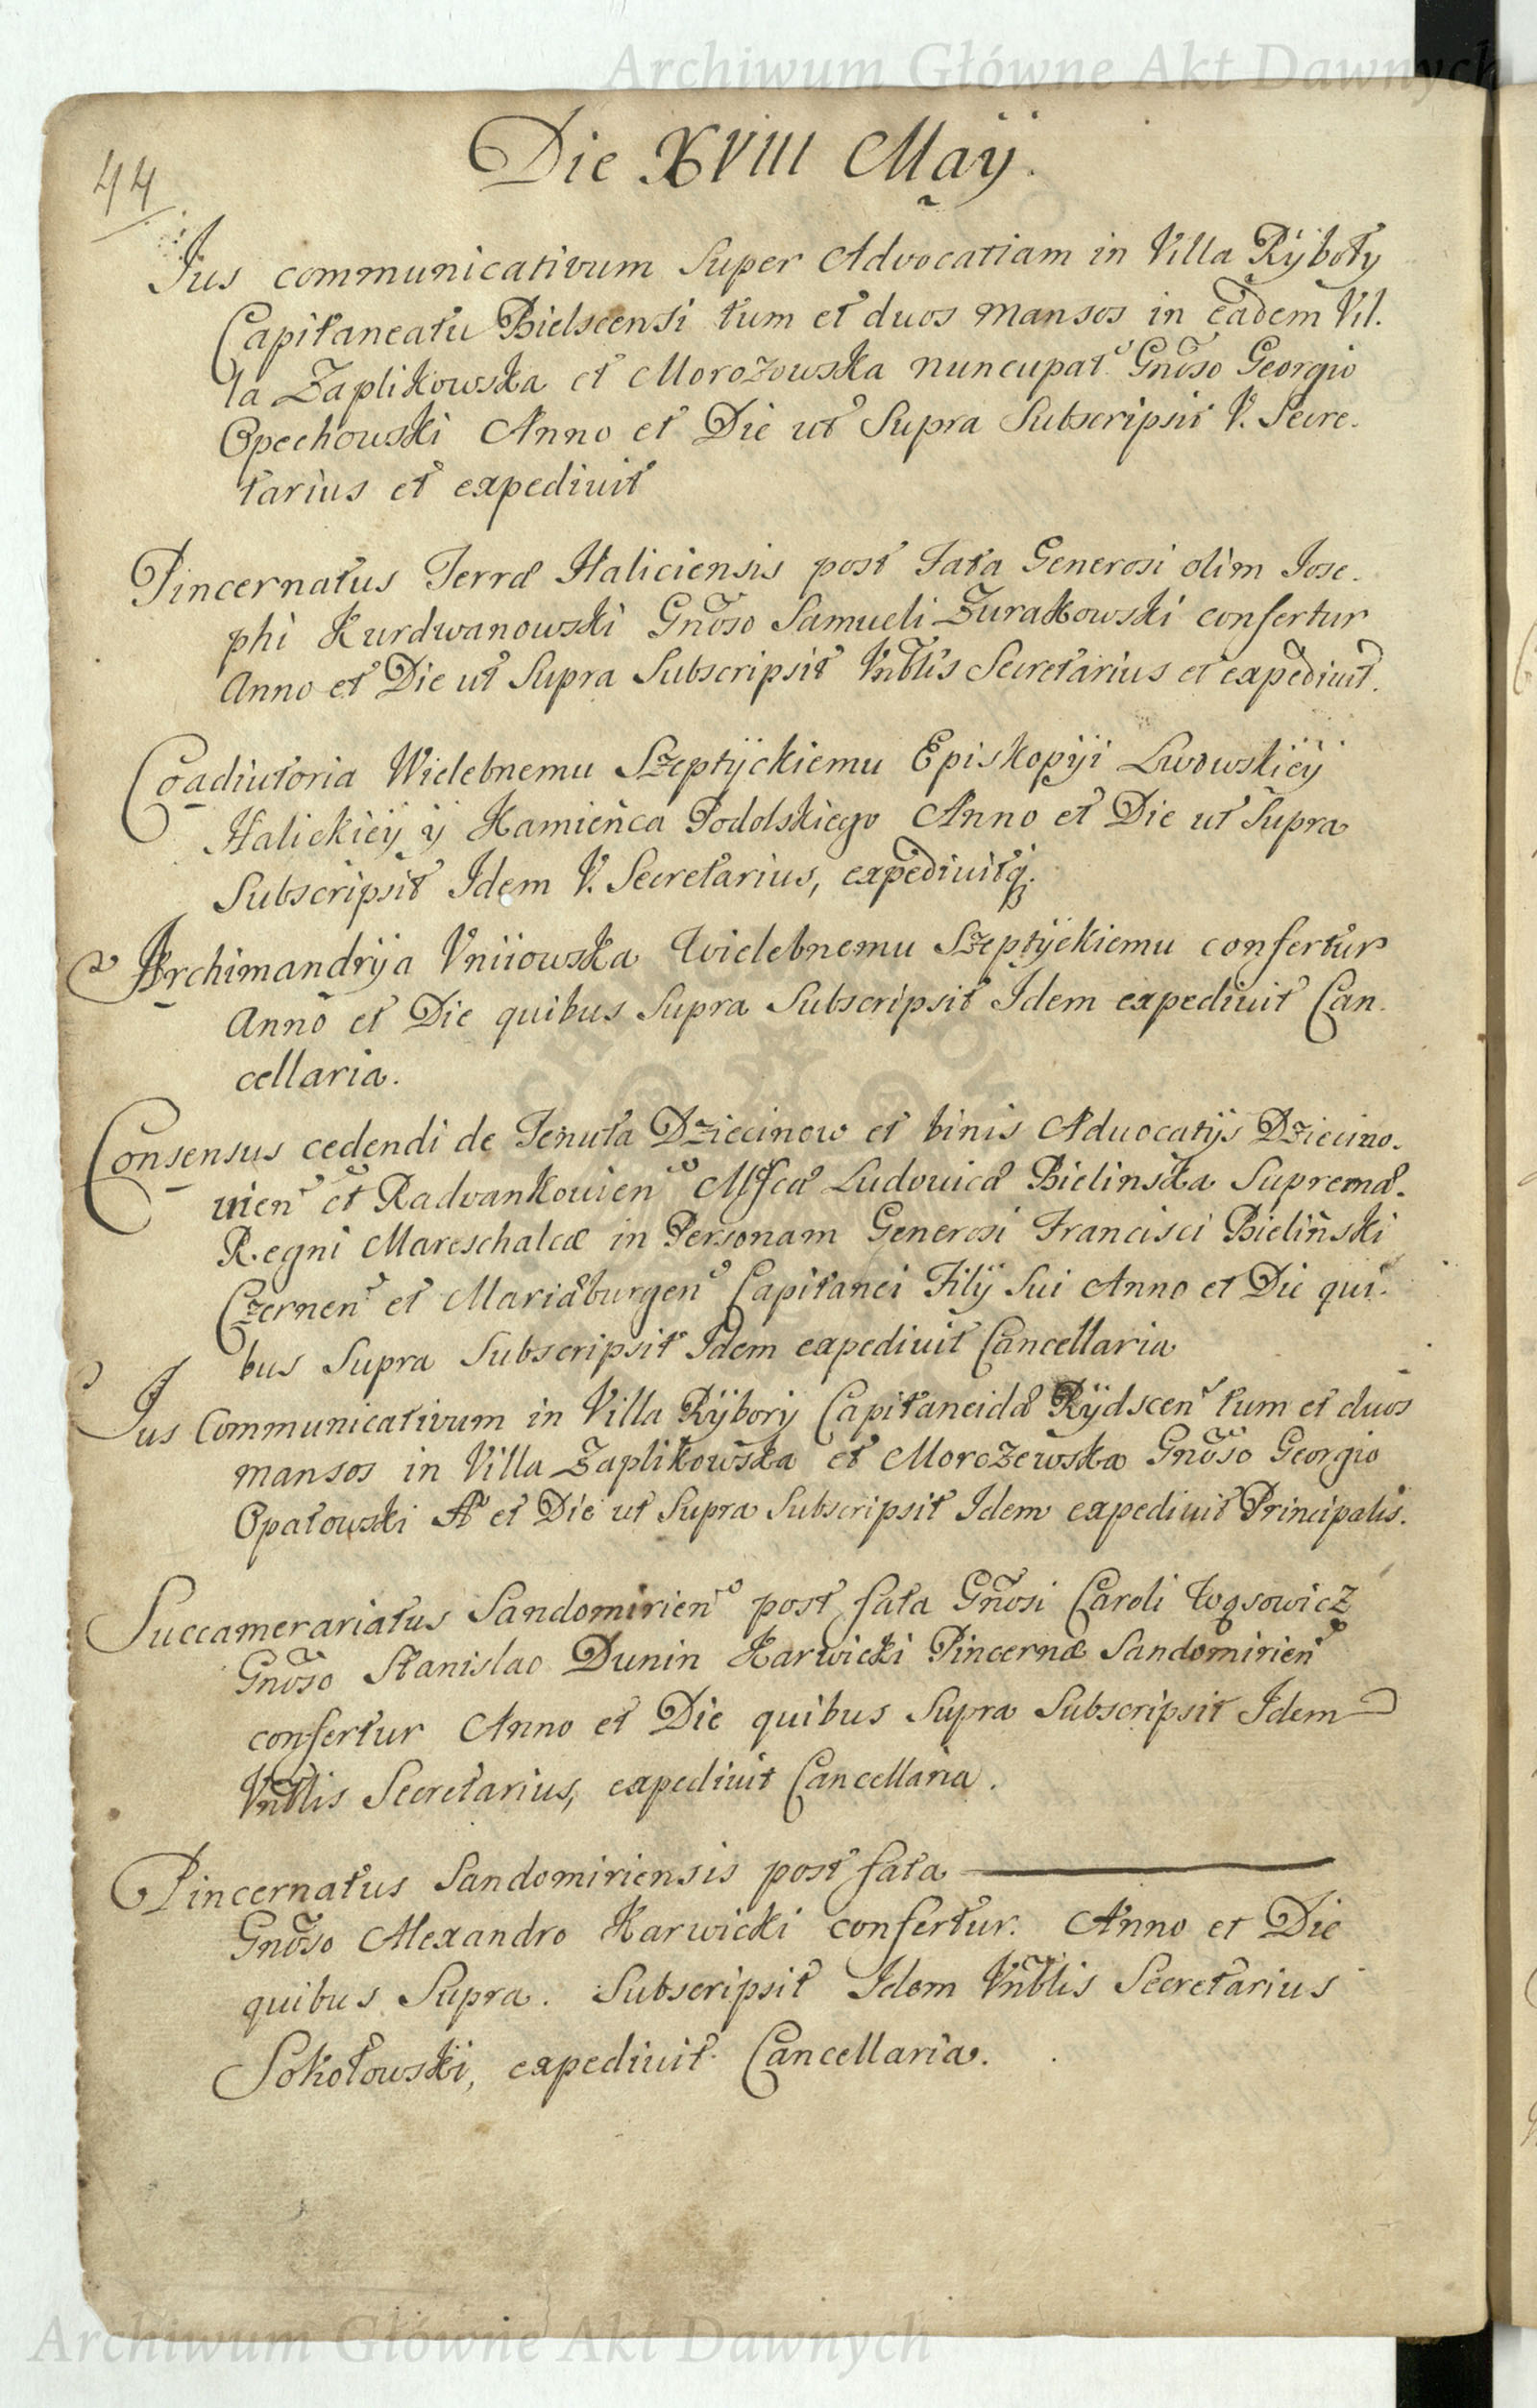 Archiwum Główne Akt Dawnych
44
Die XVIII Maÿ.
Jus communicativum super Advocatiam in Villa Rÿboty
Capitaneatu Bielscensi tum et duos mansos in eadem Vil-
la Zaplikowska et Morozowska nuncupat. Gnoso Georgio
Opechowski Anno et Die ut Supra Subscripsit V. Secre-
tarius et expedivit
Pincernatus Terræ Haliciensis post Fata Generosi olim Jose-
phi Kurdwanowski Gnoso Samueli Zurakowski confertur
Anno et Die ut Supra Subscripsit Vnblis Secretarius et expedivit.
Coadiutoria Wielebnemu Szeptÿckiemu Episkopÿi Lwowskiÿ
Halickieÿ ÿ Kamieńca Podolskiego Anno et Die ut Supra
Subscripsit Idem V. Secretarius, expedivitq.
Archimandrÿa Vniiowska Wielebnemu Szeptÿckiemu confertur
Anno et Die quibus Supra Subscripsit Idem expedivit Can-
cellaria.
Consensus cedendi de Tenuta Dziecinow et binis Aduocatÿs Dziecino-
uien et Radvankouien Mfca Ludouica Bielinska Supremæ
Regni Mareschalcæ in Personam Generosi Francisci Bieliński
Czernen et Mariæburgen Capitanei Filÿ Sui Anno et Die qui-
bus Supra Subscripsit Idem expedivit Cancellaria
Jus Communicativum in Villa Rÿborÿ Capitaneidæ Rÿdscen tum et duos
mansos in Villa Zaplikowska et Morozewska Gnoso Georgio
Opatowski Ao et Die ut Supra Subscripsit Idem expedivit Principalis.
Succamerariatus Sandomirien post fata Gnosi Caroli
Gnoso Stanislao Dunin Karwicki Pincernæ Sandomirien
confertur Anno et Die quibus Supra Subscripsit Idem
Vnblis Secretarius, expedivit Cancellaria.
Pincernatus Sandomiriensis post fata
Gnoso Alexandro Karwicki confertur. Anno et Die
quibus Supra. Subscripsit Idem Vnblis Secretarius
Sokołowski, expedivit Cancellaria.
Archiwum Główne Akt Dawnych